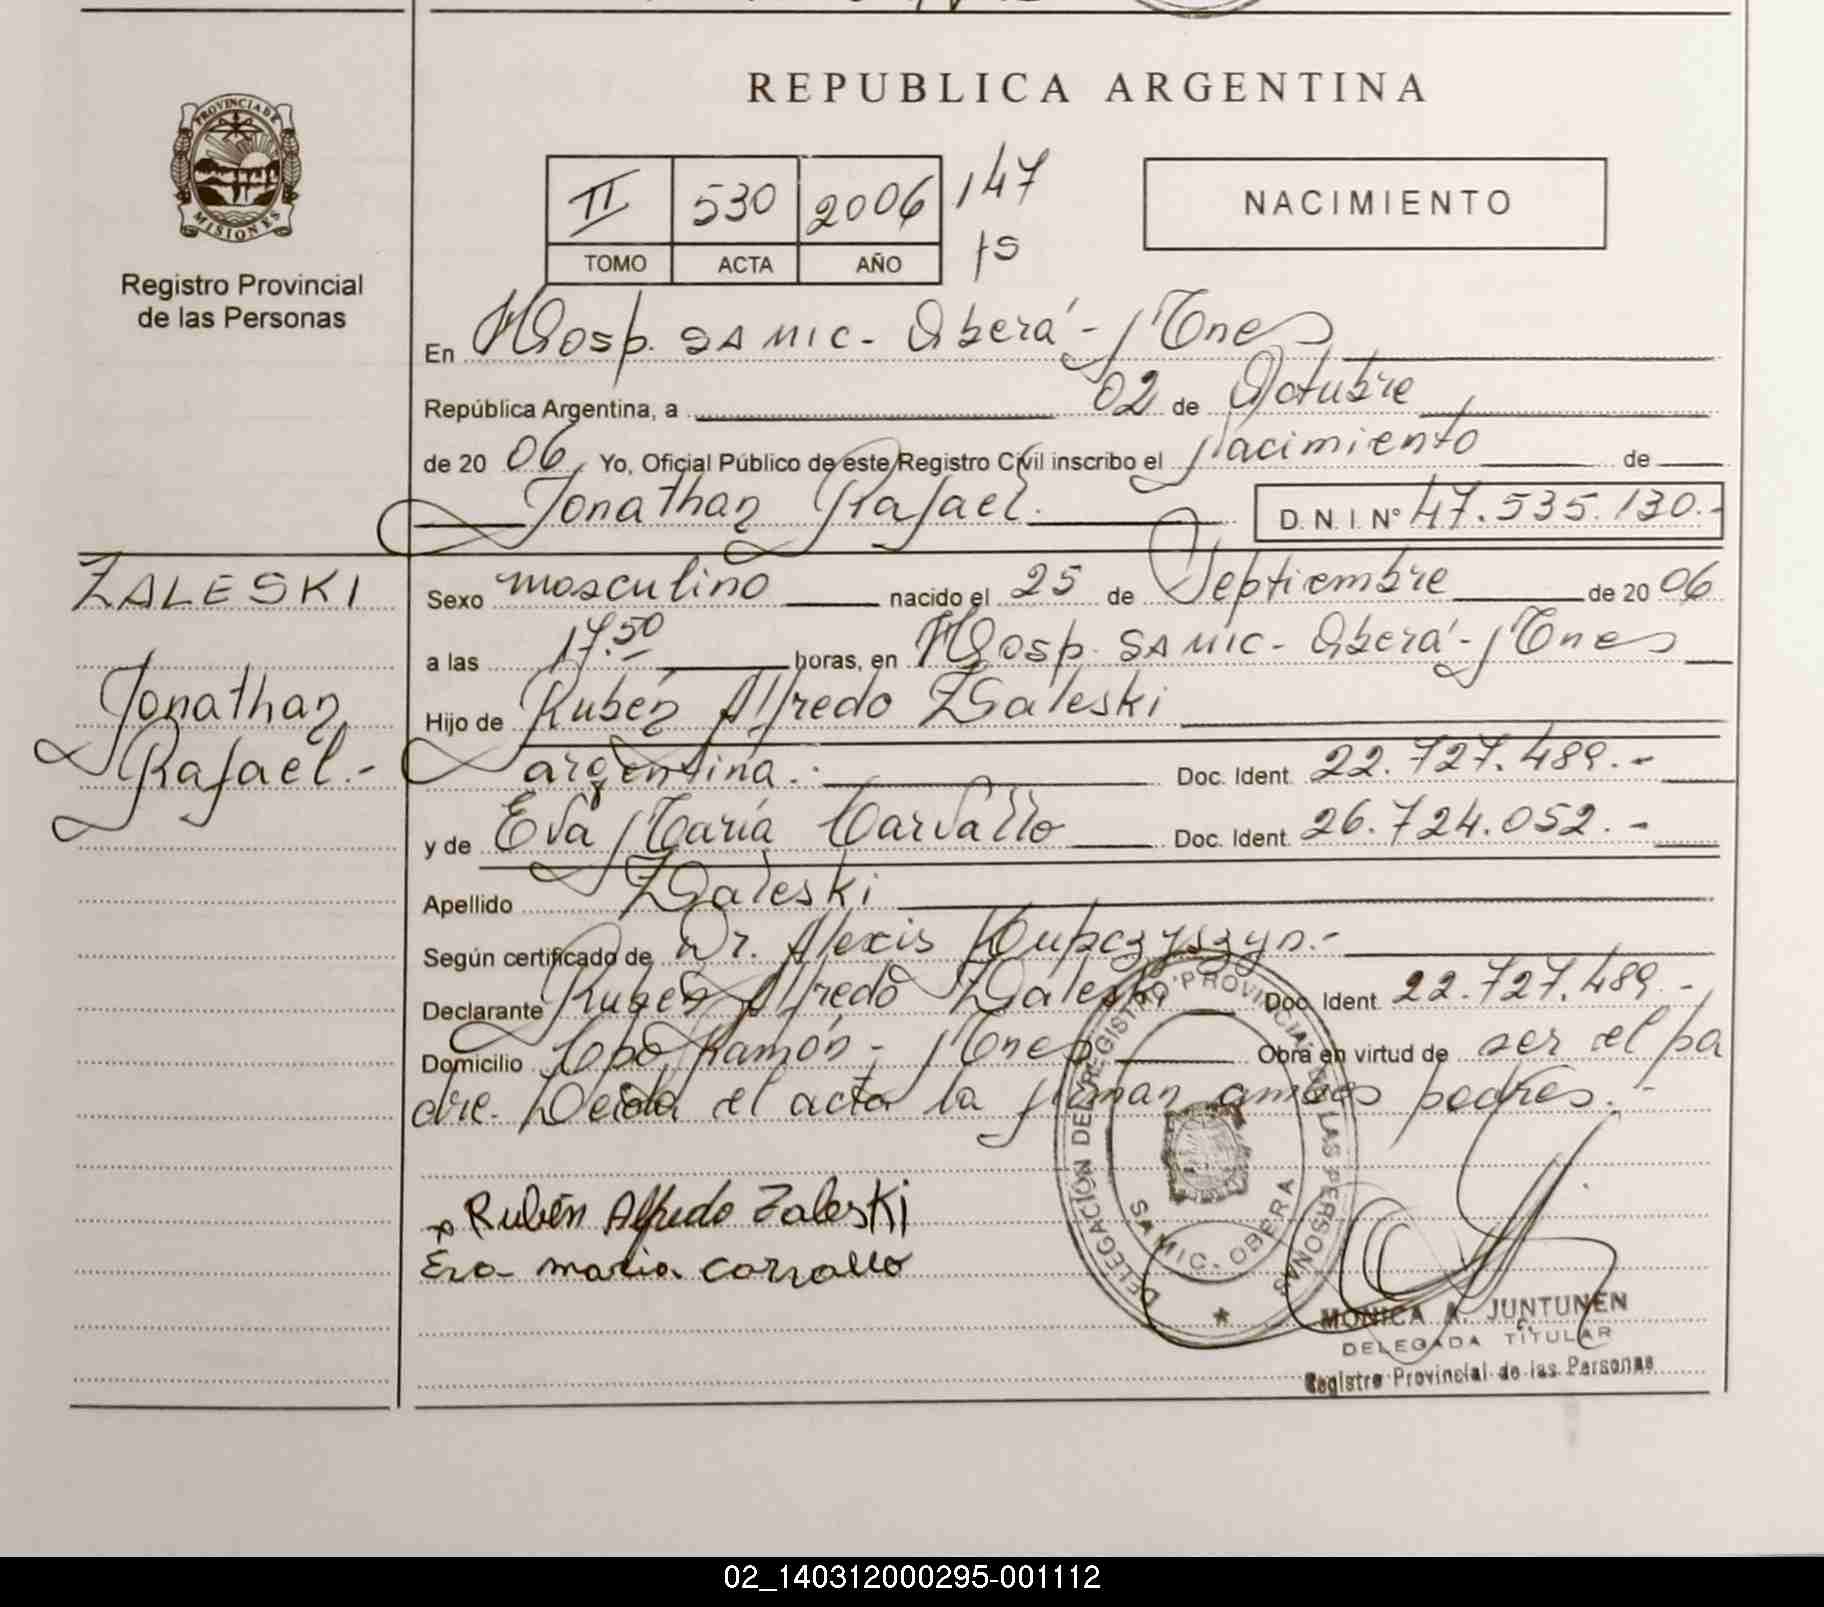 REPUBLICA ARGENTINA
PROVINCIA DE MISIONES
Registro Provincial
de las Personas
II 530 2006 147
TOMO ACTA AÑO
NACIMIENTO
En Hosp. SAMIC - Oberá - Mnes
República Argentina, a 02 de Octubre
de 2006, Yo, Oficial Público de este Registro Civil inscribo el Nacimiento de
Jonathan Rafael. D. N. I. Nº 47.535.130.-
ZALESKI
Jonathan
Rafael.-
Sexo masculino nacido el 25 de Septiembre de 2006
a las 17.50 horas, en Hosp. SAMIC - Oberá - Mnes
Hijo de Rubén Alfredo Zaleski
argentina.- Doc. Ident. 22.727.489.-
y de Eva María Carvallo Doc. Ident. 26.724.052.-
Apellido Zaleski
Según certificado de Dr. Alexis Kupczyszyn.-
Declarante Rubén Alfredo Zaleski Doc. Ident. 22.727.489.-
Domicilio Cpo Ramón - Mnes Obra en virtud de ser el pa
dre. Leída el acta la firman ambos padres.-
Rubén Alfredo Zaleski
Eva maria carvallo
DELEGACIÓN DEL REGISTRO PROVINCIAL DE LAS PERSONAS
SAMIC. OBERA
MONICA A. JUNTUNEN
DELEGADA TITULAR
Registro Provincial de las Personas
02_140312000295-001112